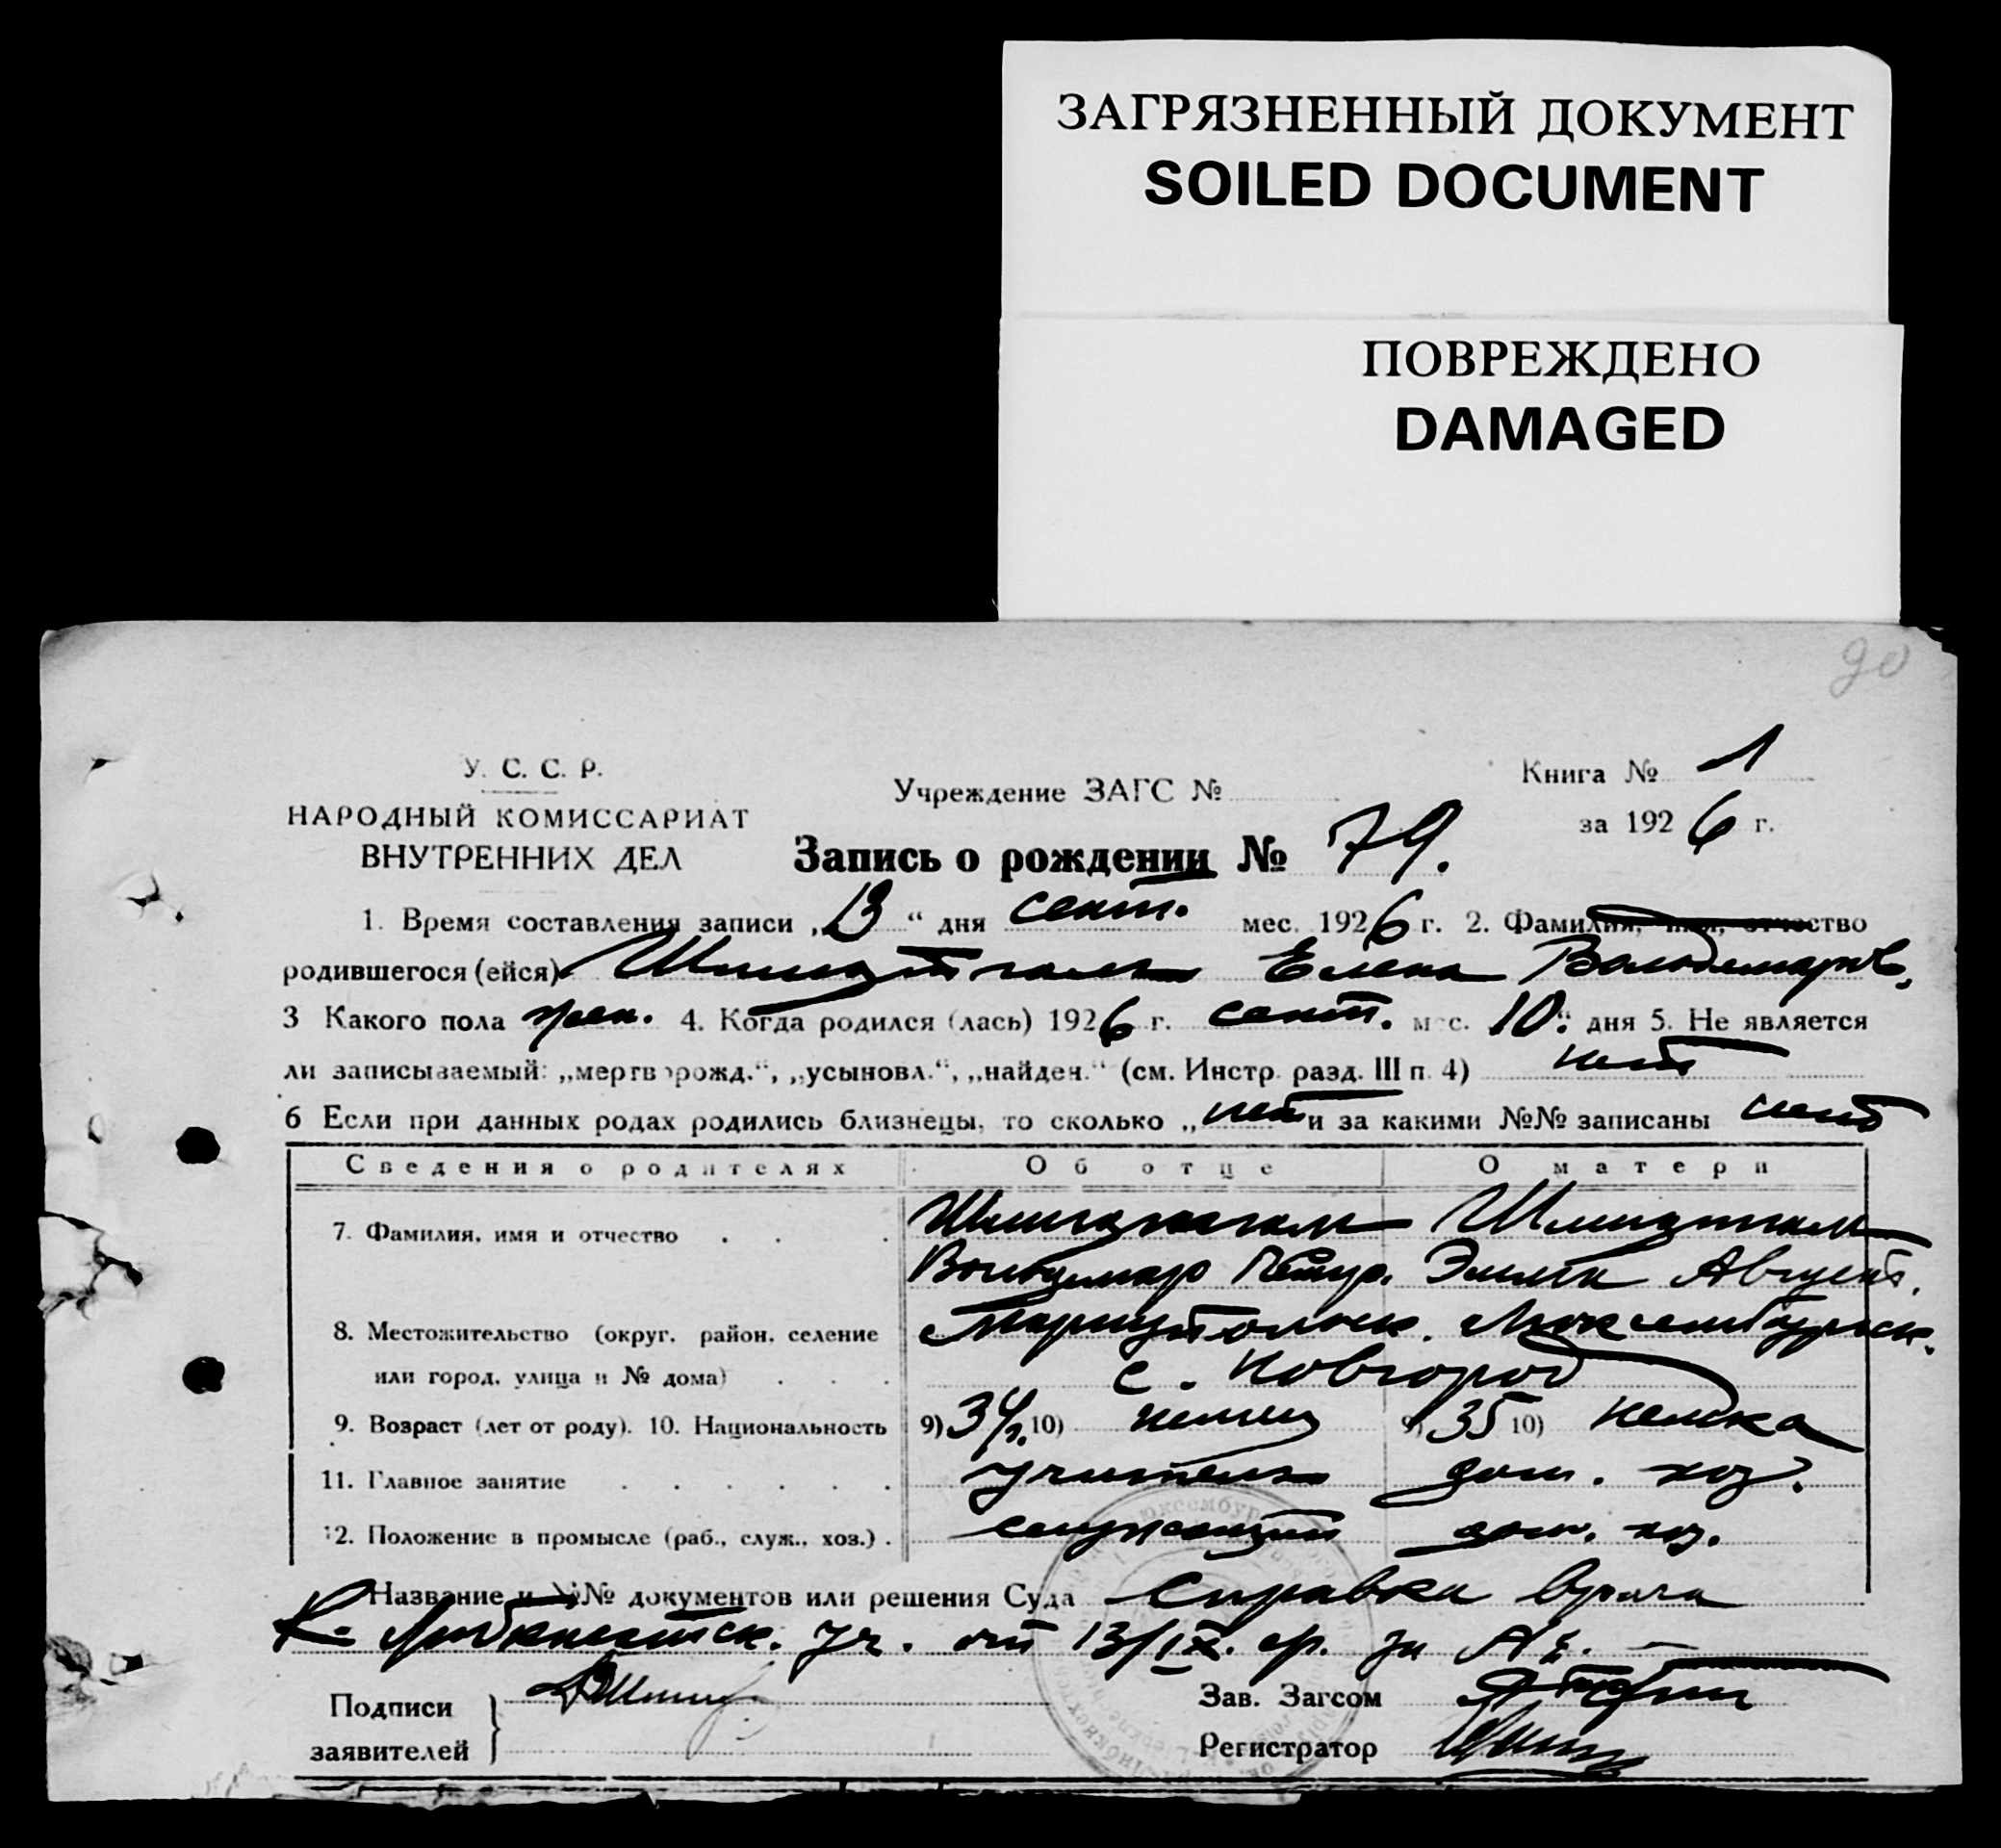 ЗАГРЯЗНЕННЫЙ ДОКУМЕНТ
SOILED DOCUMENT
ПОВРЕЖДЕНО
DAMAGED
90
У. С. С. Р.
НАРОДНЫЙ КОМИССАРИАТ
ВНУТРЕННИХ ДЕЛ
Учреждение ЗАГС №
Книга № 1
за 1926 г.
Запись о рождении № 79.
1. Время составления записи „13“ дня сент. мес. 1926 г. 2. Фамилия, имя, отчество
родившегося (ейся) Елена Вольдемаров.
3 Какого пола жен. 4. Когда родился (лась) 1926 г. сент. мес. 10 “ дня 5. Не является
ли записываемый: „мертворожд.“, „усыновл.“, „найден.“ (см. Инстр. разд. III п. 4) нет
6 Если при данных родах родились близнецы, то сколько „ нет и за какими №№ записаны нет
Сведения о родителях Об отце О матери
7. Фамилия, имя и отчество
Вольдемар Петр. Август.
8. Местожительство (округ, район, селение Мариупольск. Люксембургск.
или город, улица и № дома) с. Новгород
9. Возраст (лет от роду). 10. Национальность 9) 34 л. 10) немец 9) 35 10) немка
11. Главное занятие учитель дом. хоз.
12. Положение в промысле (раб., служ., хоз.) служащий дом. хоз.
Название и №№ документов или решения Суда Справка врача
К. Либкнехтск. уч. от 13/IX. с/г. за №
Подписи
заявителей
Зав. Загсом
Регистратор